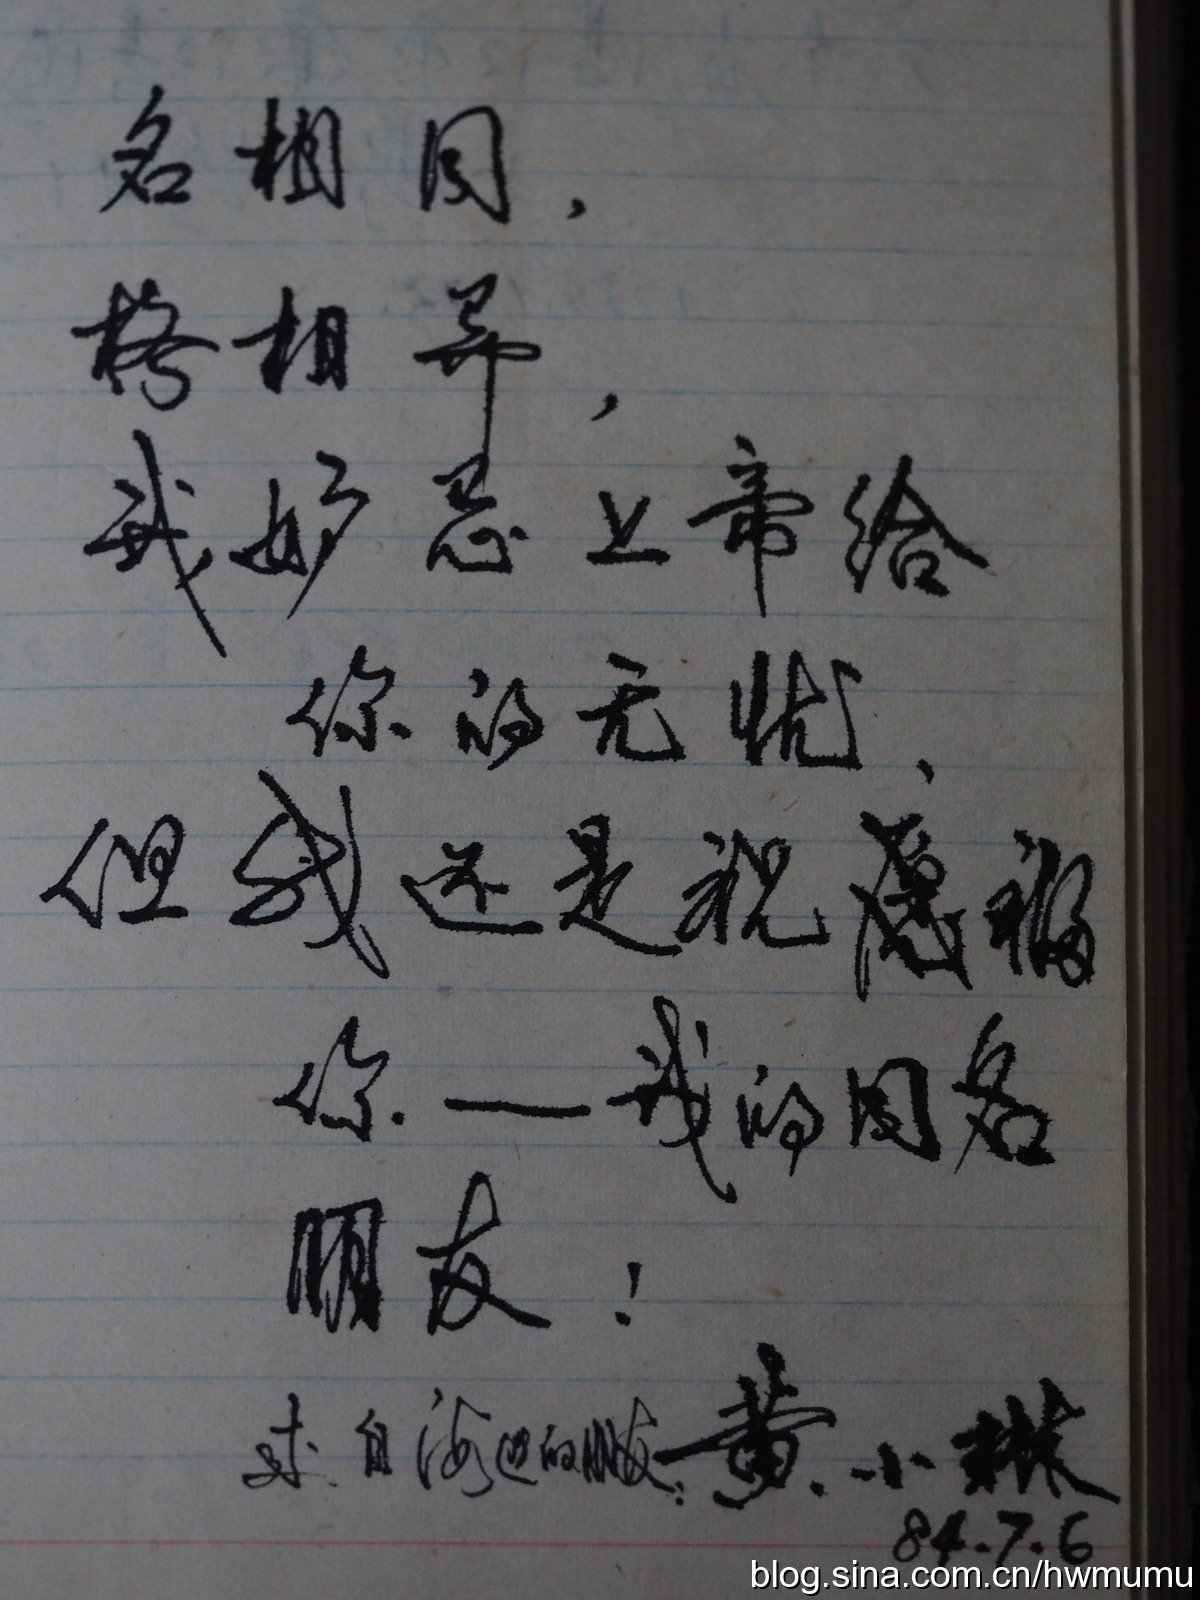 名相同，
格相异，
我妒忌上帝给
你的无忧，
但我还是祝愿福
你——我的同名
朋友！
来自海边的朋友：黄小琳
84.7.6
blog.sina.com.cn/hwmumu